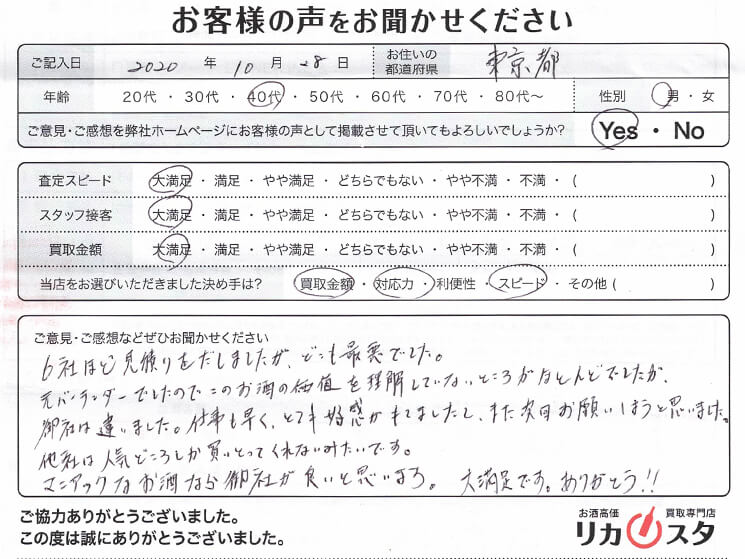 お客様の声をお聞かせください
ご記入日 2020 年 10 月 28 日 お住いの都道府県 東京都
年齢 20代・30代・40代・50代・60代・70代・80代～ 性別 男・女
ご意見・ご感想を弊社ホームページにお客様の声として掲載させて頂いてもよろしいでしょうか? Yes・No
査定スピード 大満足・満足・やや満足・どちらでもない・やや不満・不満・( )
スタッフ接客 大満足・満足・やや満足・どちらでもない・やや不満・不満・( )
買取金額 大満足・満足・やや満足・どちらでもない・やや不満・不満・( )
当店をお選びいただきました決め手は? 買取金額・対応力・利便性・スピード・その他( )
ご意見・ご感想などぜひお聞かせください
6社ほど見積りをだしましたが、どこも最悪でした。
元バーテンダーでしたのでこのお酒の価値を理解していないところがほとんどでしたが、
御社は違いました。仕事も早く、とても好感がもてましたし、また次回お願いしようと思いました。
他社は人気どころしか買いとってくれないみたいです。
マニアックなお酒なら御社が良いと思います。 大満足です。ありがとう!!
ご協力ありがとうございました。
この度は誠にありがとうございました。
お酒高価 買取専門店
リカスタ